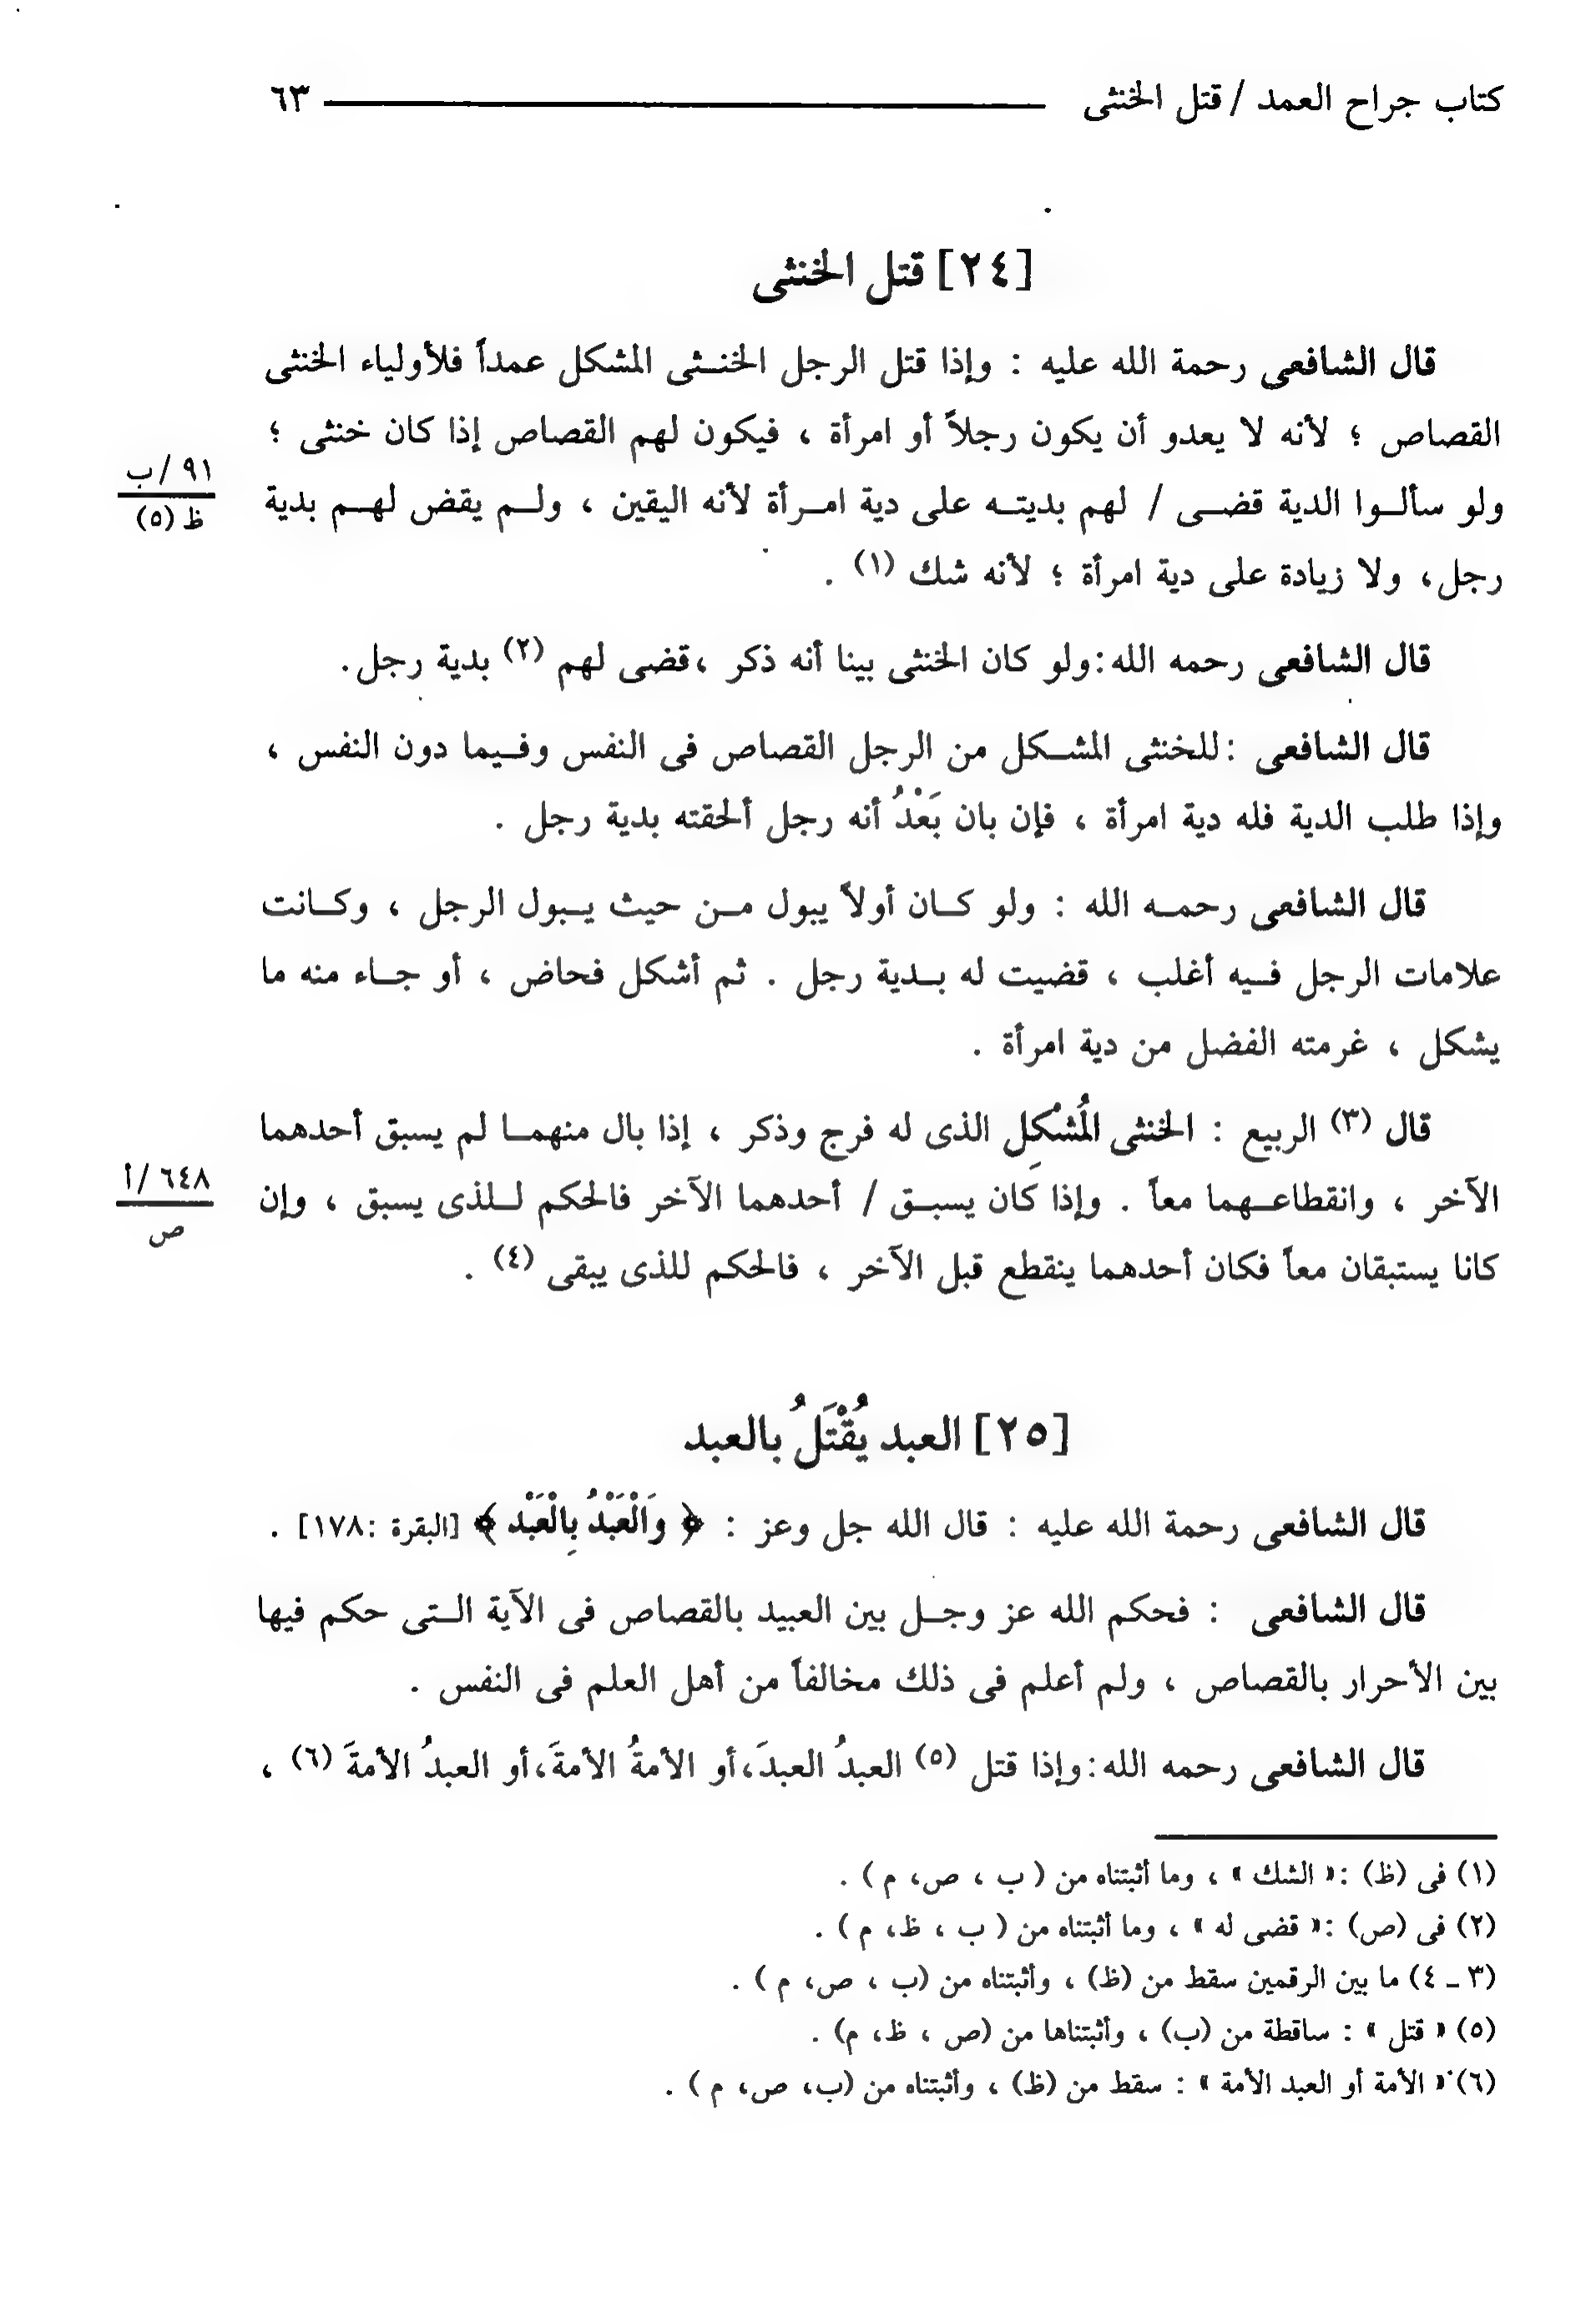 كتاب جراح العمد / قتل الخنثى ــــــــــــ ٦٣
[٢٤] قتل الخنثى
قال الشافعى رحمة الله عليه : وإذا قتل الرجل الخنثى المشكل عمداً فلأولياء الخنثى
القصاص ؛ لأنه لا يعدو أن يكون رجلاً أو امرأة ، فيكون لهم القصاص إذا كان خنثى ؛
ولو سألوا الدية قضى / لهم بديته على دية امرأة لأنه اليقين ، ولم يقض لهم بدية
٩١ /ب
ظ (٥)
رجل، ولا زيادة على دية امرأة ؛ لأنه شك (١) .
قال الشافعى رحمه الله: ولو كان الخنثى بينا أنه ذكر ، قضى لهم (٢) بدية رجل.
قال الشافعى : للخنثى المشكل من الرجل القصاص فى النفس وفيما دون النفس ،
وإذا طلب الدية فله دية امرأة ، فإن بان بَعْدُ أنه رجل ألحقته بدية رجل .
قال الشافعى رحمه الله : ولو كان أولاً يبول من حيث يبول الرجل ، وكانت
علامات الرجل فيه أغلب ، قضيت له بدية رجل . ثم أشكل فحاض ، أو جاء منه ما
يشكل ، غرمته الفضل من دية امرأة .
قال (٣) الربيع : الخنثى المُشْكِل الذى له فرج وذكر ، إذا بال منهما لم يسبق أحدهما
الآخر ، وانقطاعهما معاً . وإذا كان يسبق / أحدهما الآخر فالحكم للذى يسبق ، وإن
٦٤٨ /أ
ص
كانا يستبقان معاً فكان أحدهما ينقطع قبل الآخر ، فالحكم للذى يبقى (٤) .
[٢٥] العبد يُقْتَلُ بالعبد
قال الشافعى رحمة الله عليه : قال الله جل وعز : ﴿ وَالْعَبْدُ بِالْعَبْدِ ﴾ [البقرة : ١٧٨] .
قال الشافعى : فحكم الله عز وجل بين العبيد بالقصاص فى الآية التى حكم فيها
بين الأحرار بالقصاص ، ولم أعلم فى ذلك مخالفاً من أهل العلم فى النفس .
قال الشافعى رحمه الله: وإذا قتل (٥) العبدُ العبدَ، أو الأمةُ الأمةَ، أو العبدُ الأمةَ (٦) ،
(١) فى (ظ) : « الشك » ، وما أثبتناه من ( ب ، ص، م ) .
(٢) فى (ص) : « قضى له » ، وما أثبتناه من ( ب ، ظ، م ) .
(٣ ـ ٤) ما بين الرقمين سقط من (ظ) ، وأثبتناه من (ب ، ص، م ) .
(٥) « قتل » : ساقطة من (ب) ، وأثبتناها من (ص ، ظ، م) .
(٦) « الأمة أو العبد الأمة » : سقط من (ظ) ، وأثبتناه من (ب، ص، م ) .